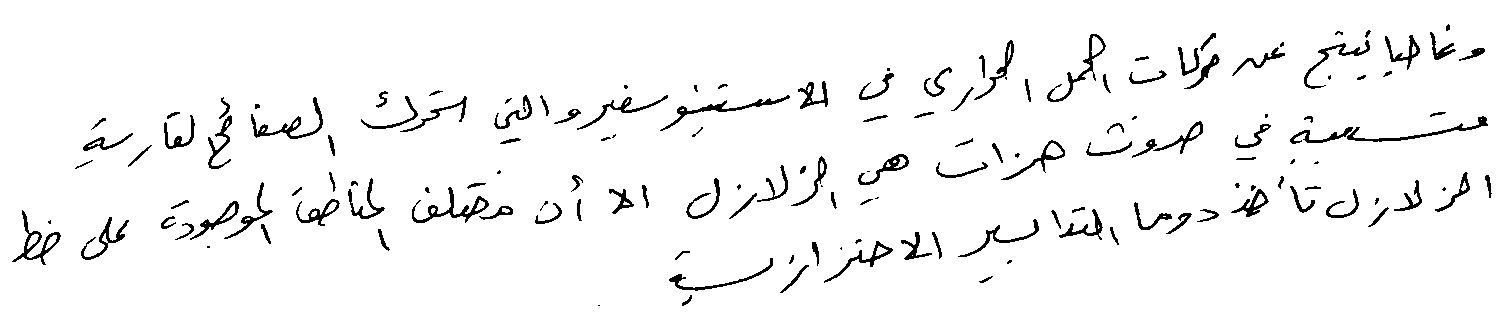 وغالبا ينتج عن حركات الحمل الحراري في الاستينوسفير والتي تحرك الصفائح القارية
متسببة في حدوث هزات هي الزلازل الا أن مختلف المناطق الموجودة على خط
الزلازل تأخذ دوما التدابير الاحترازية